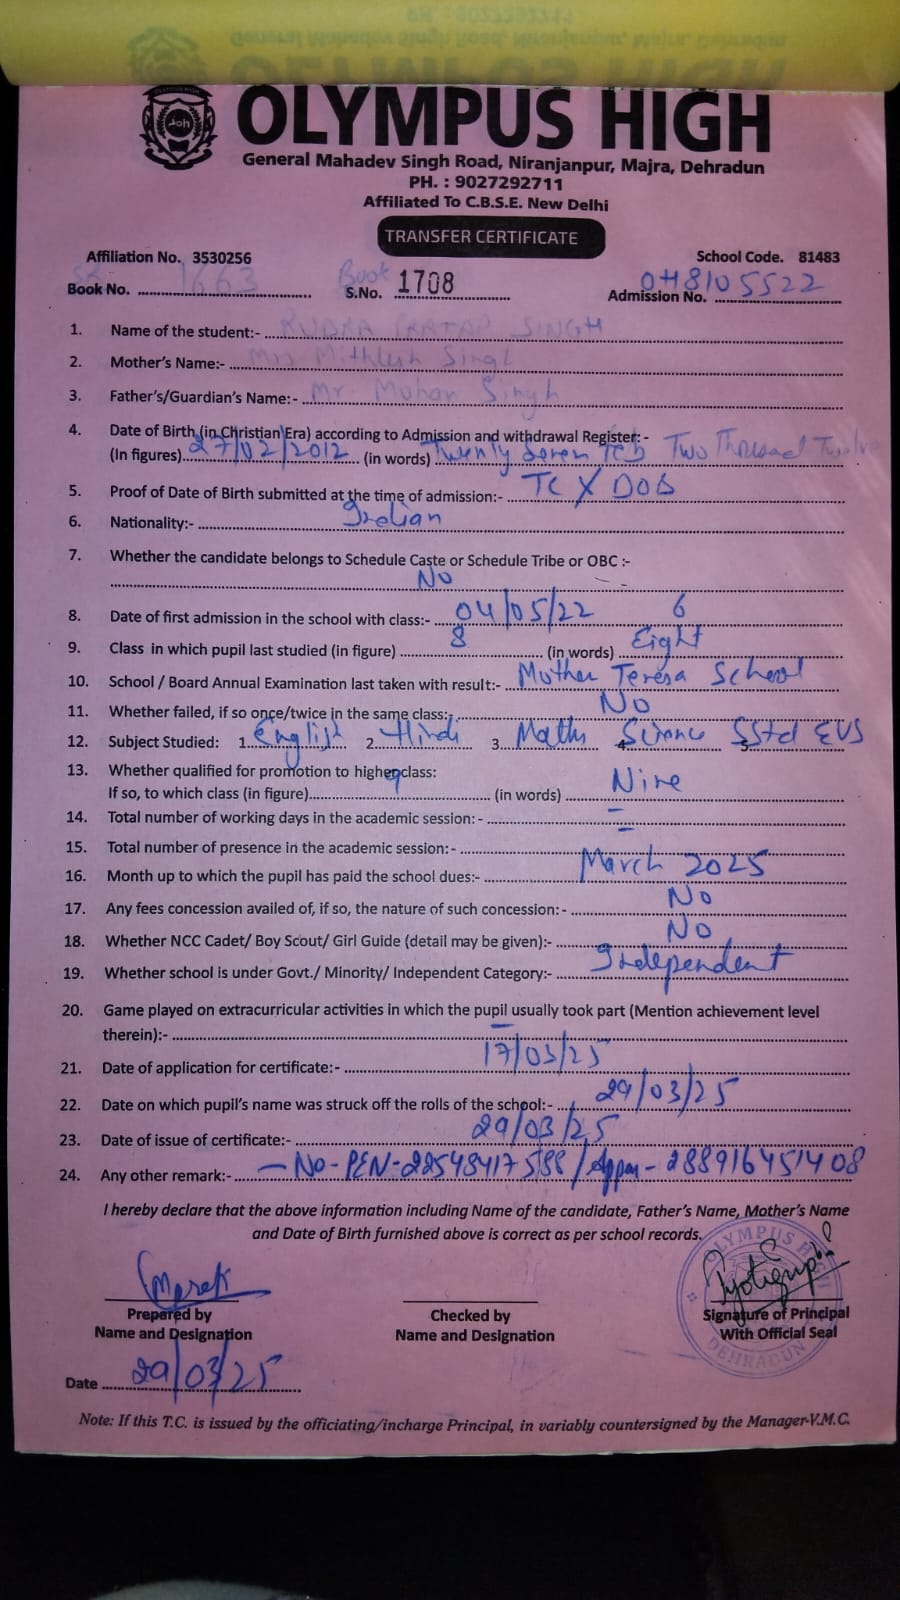 OLYMPUS HIGH
General Mahadev Singh Road, Niranjanpur, Majra, Dehradun
PH. : 9027292711
Affiliated To C.B.S.E. New Delhi
TRANSFER CERTIFICATE
Affiliation No. 3530256 School Code. 81483
Book No. 1663 Book S.No. 1708 Admission No. OH8105522
1. Name of the student:- RUDRA PRATAP SINGH
2. Mother's Name:- Mrs Mithlesh Singh
3. Father's/Guardian's Name:- Mr Mohan Singh
4. Date of Birth (in Christian Era) according to Admission and withdrawal Register:-
(In figures) 27/02/2012 (in words) Twenty Seven Feb Two Thousand Twelve
5. Proof of Date of Birth submitted at the time of admission:- TC X DOB
6. Nationality:- Indian
7. Whether the candidate belongs to Schedule Caste or Schedule Tribe or OBC :-
No
8. Date of first admission in the school with class:- 04/05/22 6
9. Class in which pupil last studied (in figure) 8 (in words) Eight
10. School / Board Annual Examination last taken with result:- Mother Teresa School
11. Whether failed, if so once/twice in the same class:- No
12. Subject Studied: 1. English 2. Hindi 3. Maths 4. Science 5. SStd EVS
13. Whether qualified for promotion to higher class:
If so, to which class (in figure) 9 (in words) Nine
14. Total number of working days in the academic session: - –
15. Total number of presence in the academic session:- –
16. Month up to which the pupil has paid the school dues:- March 2025
17. Any fees concession availed of, if so, the nature of such concession: - No
18. Whether NCC Cadet/ Boy Scout/ Girl Guide (detail may be given):- No
19. Whether school is under Govt./ Minority/ Independent Category:- Independent
20. Game played on extracurricular activities in which the pupil usually took part (Mention achievement level
therein):- –
21. Date of application for certificate:- 17/03/25
22. Date on which pupil's name was struck off the rolls of the school:- 29/03/25
23. Date of issue of certificate:- 29/03/25
24. Any other remark:- – No - PEN-22548417588 / Appar - 288916451408
I hereby declare that the above information including Name of the candidate, Father's Name, Mother's Name
and Date of Birth furnished above is correct as per school records.
OLYMPUS HIGH
DEHRADUN
Prepared by Checked by Signature of Principal
Name and Designation Name and Designation With Official Seal
Date 29/03/25
Note: If this T.C. is issued by the officiating/incharge Principal, in variably countersigned by the Manager-V.M.C.